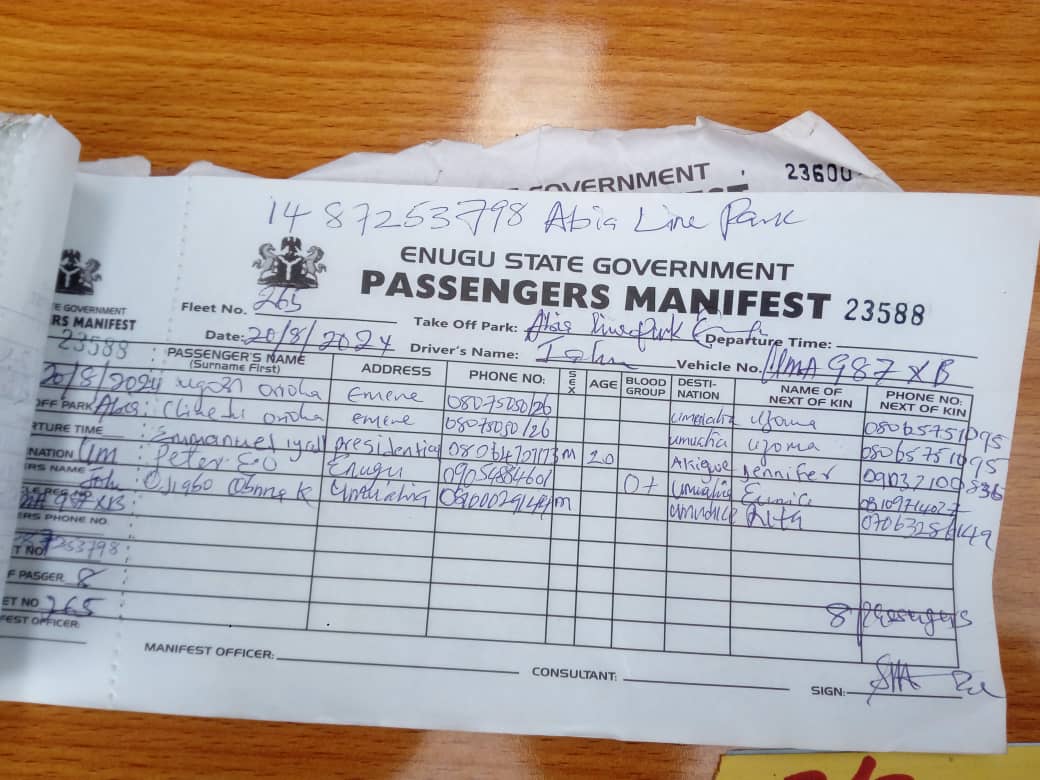 GOVERNMENT 23600
14 87253798 Abia Line Park
ENUGU STATE GOVERNMENT
PASSENGERS MANIFEST 23588
Fleet No. 265 Take Off Park: Abia Line Park Departure Time:
Date: 20/8/2024 Driver's Name: John Vehicle No. UMA 987 XB
PASSENGER'S NAME (Surname First) ADDRESS PHONE NO: SEX AGE BLOOD GROUP DESTI-NATION NAME OF NEXT OF KIN PHONE NO: NEXT OF KIN
Ugozi Orioha Emene 08075050126 Umuahia Uzoma 08065751095
Chinedu Orioha Emene 08075050126 Umuahia Uzoma 08065751095
Emmanuel presidential M 20 Jennifer 09037100836
Peter Enugu 09056884601 O+ Umuahia Eunice
Umuahia M Rita 07063286149
8 Passengers
MANIFEST OFFICER: CONSULTANT: SIGN:
E GOVERNMENT
RS MANIFEST
23588
20/8/2024
OFF PARK Abia
RTURE TIME
NATION Um
ERS NAME John
987 XB
ERS PHONE NO.
253798
T NO
F PASGER. 8
ET NO 265
FEST OFFICER: